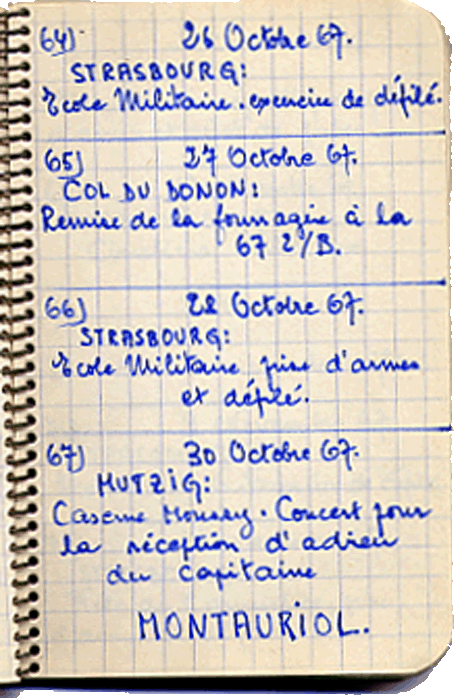 64) 26 Octobre 67.
STRASBOURG:
Ecole Militaire. exercice de défilé.
65) 27 Octobre 67.
COL DU DONON:
Remise de la fourragère à la
67 2/B.
66) 28 Octobre 67.
STRASBOURG:
Ecole Militaire prise d'armes
et défilé.
67) 30 Octobre 67.
MUTZIG:
Caserne Moussy. Concert pour
la réception d'adieu
du capitaine
MONTAURIOL.